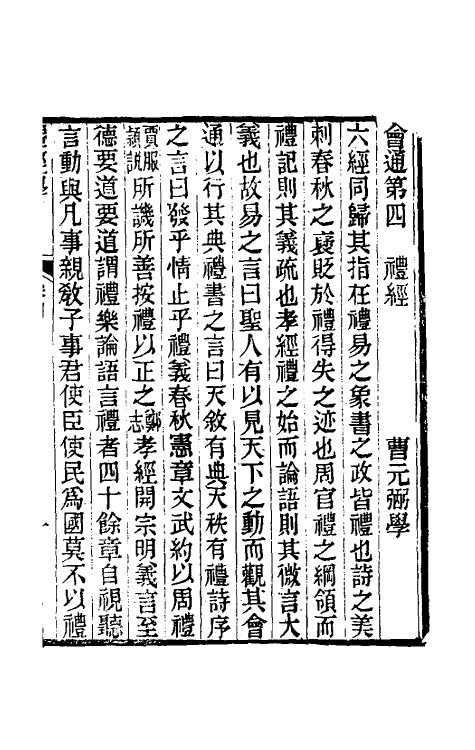 會通第四　禮經　曹元弼學
六經同歸其指在禮易之象書之政皆禮也詩之美
刺春秋之襃貶於禮得失之迹也周官禮之綱領而
禮記則其義疏也孝經禮之始而論語則其微言大
義也故易之言曰聖人有以見天下之動而觀其會
通以行其典禮書之言曰天敘有典天秩有禮詩序
之言曰發乎情止乎禮義春秋憲章文武約以周禮
賈服潁說所譏所善按禮以正之鄭志孝經開宗明義言至
德要道要道謂禮樂論語言禮者四十餘章自視聽
言動與凡事親敎子事君使臣使民爲國莫不以禮
一